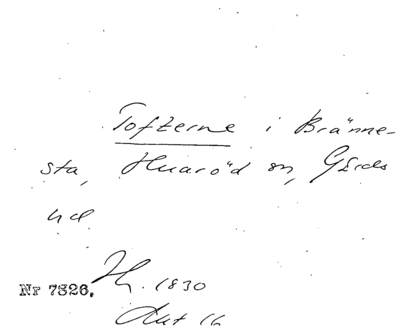 Tofterne i Bränne-
sta, Huaröd sn, Gärds
hd.
Nr 7326. H. 1830
Akt 16